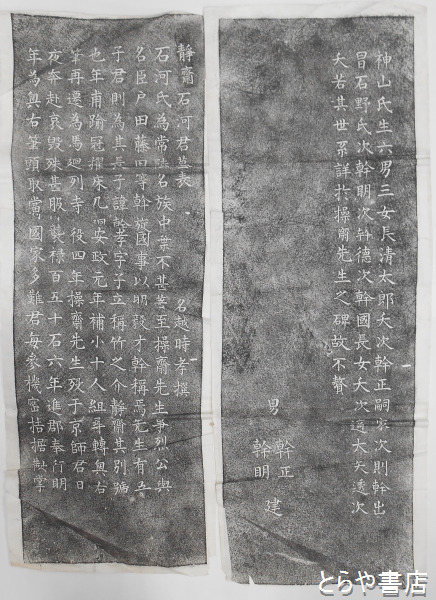 靜齋石河君墓表　名越時孝撰
石河氏為常陸名族中葉不甚至操齋先生爭烈公與
名臣戶田藤田等幹旋國事以明毅才幹稱焉先生有五
子君則為其長子諱幹孝字子立稱竹之介靜齋其別號
也年甫踰冠擢床几安政元年補小十人組尋轉奧右
筆再遷為馬廻列寺役四年操齋先生歿于京師君日
夜奔赴哀毀甚服襲祿百五十石六年進郡奉行明
年為奧右筆頭取當國家多難君每參機密拮据鞅掌
神山氏生六男三女長清太郎夭次幹正嗣家次則幹出
冒石野氏次幹明次幹德次幹國長女夭次適大矢透次
夭若其世系詳於操齋先生之碑故不贅
男 幹正
幹明 建
とらや書店